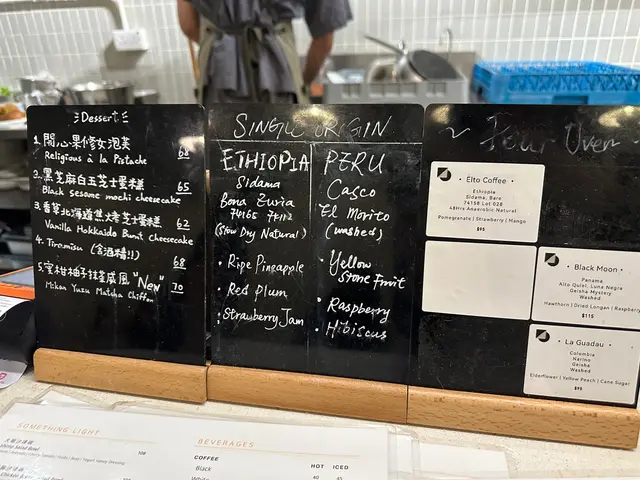 Dessert
1. 開心果修女泡芙
Religious à la Pistache 68
2. 黑芝麻白玉芝士蛋糕 65
Black sesame mochi cheesecake
3. 香草北海道焦烤芝士蛋糕 62
Vanilla Hokkaido Burnt Cheesecake
4. Tiramisu (含酒精!!) 68
5. 蜜柑柚子抹茶戚風 "New" 70
Mikan Yuzu Matcha Chiffon
SINGLE ORIGIN
ETHIOPIA
Sidama
Bona Zuria
74165 74112
(Slow Dry Natural)
• Ripe Pineapple
• Red Plum
• Strawberry Jam
PERU
Casco
El Morito
(washed)
• Yellow
Stone Fruit
• Raspberry
• Hibiscus
~ Pour Over
• Elto Coffee •
Ethiopia
Sidama, Bare
74158 Lot 028
48Hrs Anaerobic Natural
Pomegranate | Strawberry | Mango
$95
• Black Moon •
Panama
Alto Quiel, Luna Negra
Geisha Mystery
Washed
Hawthorn | Dried Longan | Raspberry
$115
• La Guadau •
Colombia
Narino
Geisha
Washed
Elderflower | Yellow Peach | Cane Sugar
$95
SOMETHING LIGHT
Shrimp Salad Bowl 108
BEVERAGES
COFFEE HOT ICED
Black 40 45
White